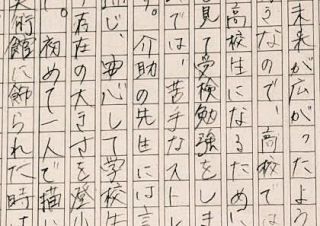 未来が広がったよう
うなので、高校では
高校生になるために
見て受検勉強をしま
では、苦手なストレ
す。介助の先生には言
じ、安心して学校生
存在の大きさを登小
初めて一人で描い
美術館に飾られた時は